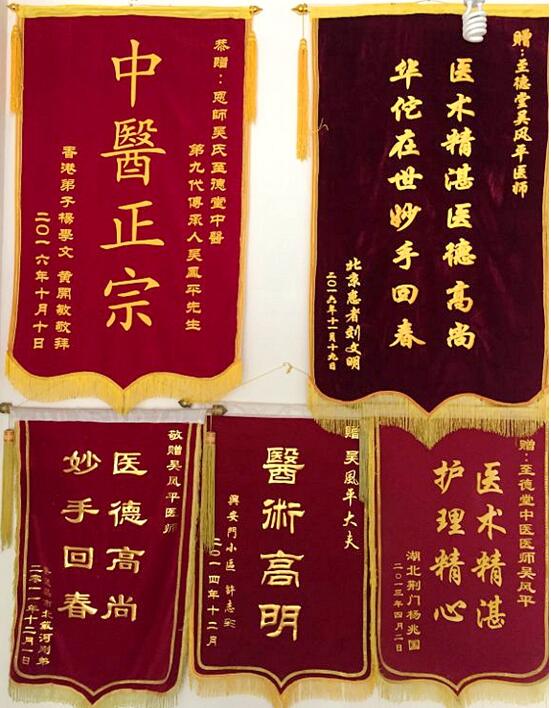 恭赠：恩師吴氏至德堂中醫
第九代傳承人吴鳳平先生
中醫正宗
香港弟子楊學文 黄開敏敬拜
二〇一六年十月十日
赠：至德堂吴风平医师
医术精湛医德高尚
华佗在世妙手回春
北京患者刘文明
二〇一六年十一月十九日
敬赠吴凤平医师
医德高尚
妙手回春
二零一一年十二月一日
赠 吴風平大夫
醫術高明
興安門小區 許志
二〇一四年十二月
赠：至德堂中医医师吴风平
医术精湛
护理精心
湖北荆门杨兆国
二〇一三年四月二日